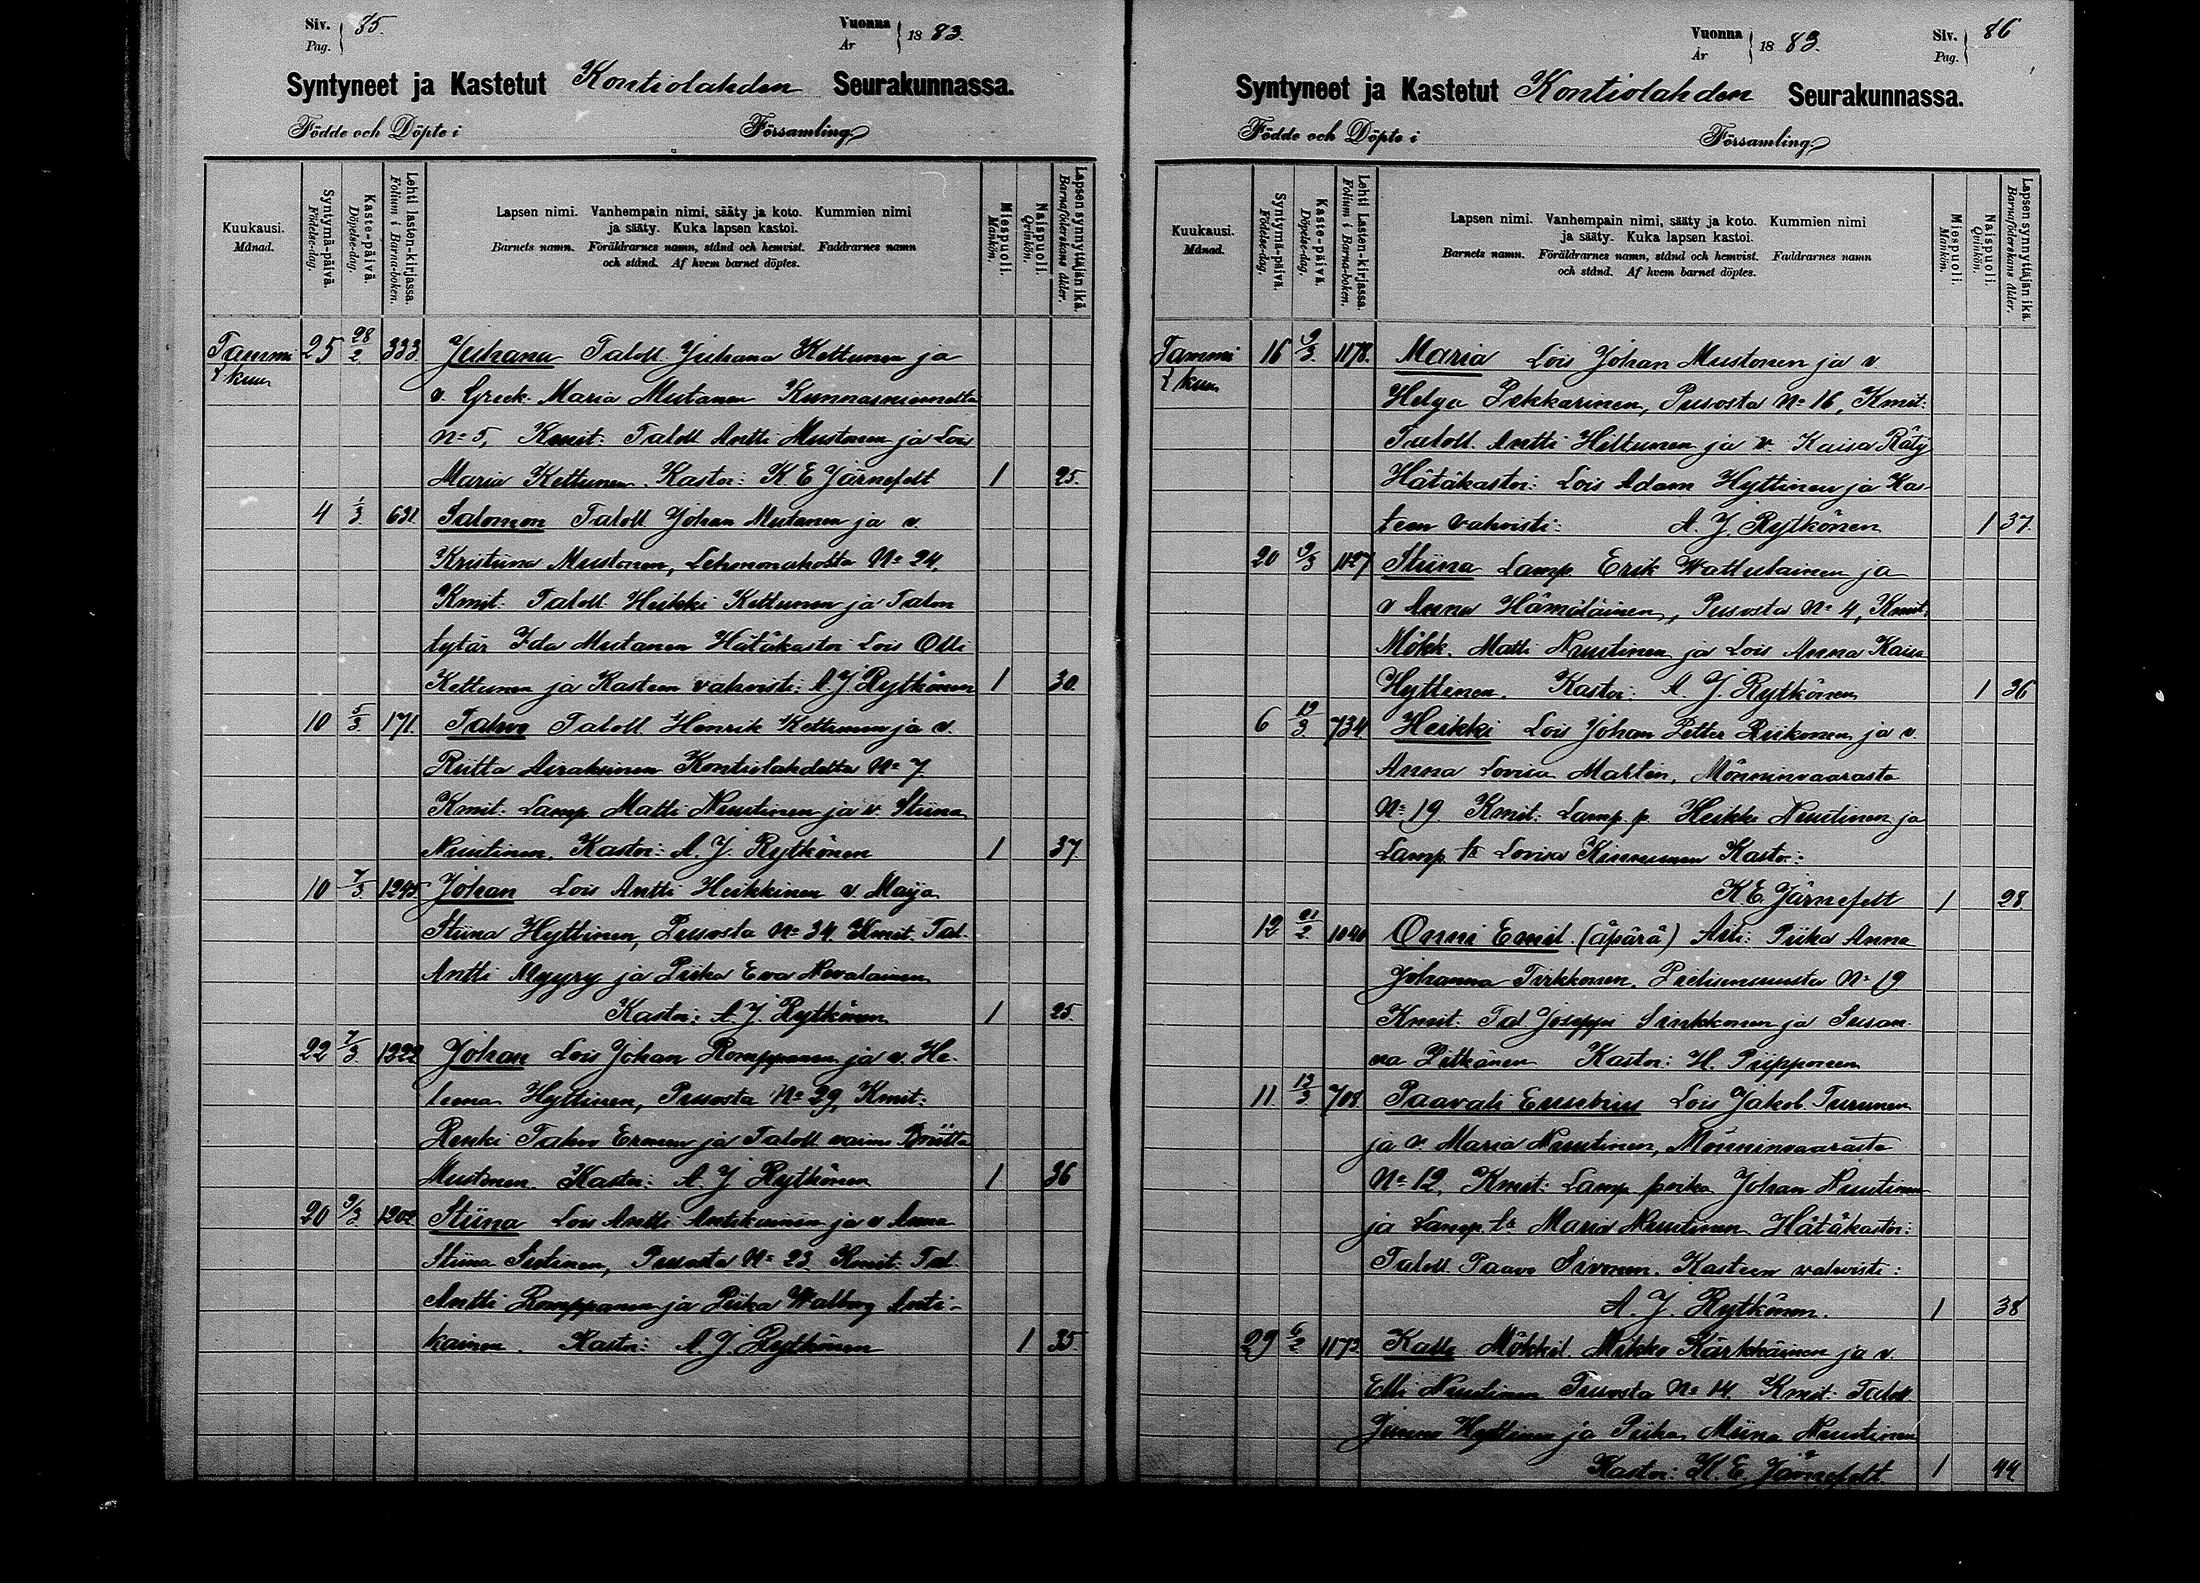 Siv. Pag. } 85.
Vuonna År } 1883.
Syntyneet ja Kastetut Kontiolahden Seurakunnassa.
Födde och Döpte i Församling
Kuukausi. Månad.
Syntymä-päivä. Födelse-dag.
Kaste-päivä. Döpelse-dag.
Lehti lasten-kirjassa. Folium i Barna-boken.
Lapsen nimi. Vanhempain nimi, sääty ja koto. Kummien nimi
ja sääty. Kuka lapsen kastoi.
Barnets namn. Föräldrarnes namn, stånd och hemvist. Faddrarnes namn
och stånd. Af hvem barnet döptes.
Miespuoli. Mankön.
Naispuoli. Qvinkön.
Lapsen synnyttäjän ikä. Barnaföderskans ålder.
Tammi 25 28/2 333 Juhana Taloll Juhana Kettunen ja
kuu v. Greek. Maria Mutanen Kunnasniemeltä
No 5, Kmit: Taloll Antti Mustonen ja Lois
Maria Kettunen. Kastoi: K. E Järnefelt 1 25.
4 1/3 631 Salomon Taloll Johan Mutanen ja v.
Kristiina Mustonen, Lehmonaholta No 24,
Kmit: Taloll Heikki Kettunen ja Talon
tytär Ida Mutanen Hätäkastoi Lois Olli
Kettunen ja Kasteen vahvisti: A. J Rytkönen 1 30.
10 5/3 171. Tahvo Taloll Henrik Kettunen ja v.
Riitta Airaksinen Kontiolahdelta No 7
Kmit: Lamp Matti Nuutinen ja v. Stiina
Nuutinen. Kastoi: A. J. Rytkönen 1 37
10 7/3 1245 Johan Lois Antti Heikkinen v. Maija
Stiina Hyttinen, Pusosta No 34. Kmit. Tal.
Antti Myyry ja Piika Eva Nevalainen
Kastoi: A. J. Rytkönen 1 25.
22 7/3 1222 Johan Lois Johan Romppanen ja v. He-
leena Hyttinen, Pusosta No 29, Kmit:
Renki Tahvo Ermen ja Taloll vaimo Briitta
Mustonen. Kastoi: A. J Rytkönen 1 36
20 9/3 1202 Stiina Lois Antti Antikainen ja v Anna
Stiina Siitinen, Pusosta No 23. Kmit. Tal.
Antti Romppanen ja Piika Walborg Anti-
kainen. Kastoi: A. J Rytkönen 1 35.
Vuonna År } 1883.
Siv. Pag. } 86
Syntyneet ja Kastetut Kontiolahden Seurakunnassa.
Födde och Döpte i Församling
Kuukausi. Månad.
Syntymä-päivä. Födelse-dag.
Kaste-päivä. Döpelse-dag.
Lehti Lasten-kirjassa. Folium i Barna-boken.
Lapsen nimi. Vanhempain nimi, sääty ja koto. Kummien nimi
ja sääty. Kuka lapsen kastoi.
Barnets namn. Föräldrarnes namn, stånd och hemvist. Faddrarnes namn
och stånd. Af hvem barnet döptes.
Miespuoli. Mankön.
Naispuoli. Qvinkön.
Lapsen synnyttäjän ikä. Barnaföderskans ålder.
Tammi 16 9/3 1178. Maria Lois Johan Mustonen ja v.
kuu Helga Pekkarinen, Pusosta No 16, Kmit:
Taloll. Antti Hiltunen ja v. Kaisa Räty
Hätäkastoi: Lois Adam Hyttinen ja Kas-
teen vahvisti: A. J. Rytkönen 1 37.
20 9/3 1127 Stiina Lamp. Erik Wattulainen ja
v Anna Hämäläinen, Pusosta No 4, Kmit:
Mökk. Matti Nuutinen ja Lois Anna Kaisa
Hyttinen. Kastoi: A. J Rytkönen 1 36
6 19/3 734 Heikki Lois Johan Petter Riikonen ja v.
Anna Lovisa Martin, Mönninvaarasta
No 19 Kmit: Lamp. p. Heikki Nuutinen ja
Lamp. tr Lovisa Kinnunen Kastoi:
K. E. Järnefelt 1 28.
12 21/2 1040 Onni Emil. (äpärä) Äiti: Piika Anna
Johanna Tirkkonen. Pielisensuusta No 19
Kmit. Tal Joseppi Sinkkonen ja Susan-
na Pitkänen Kastoi: H. Piipponen
11 13/3 708. Paavali Eusebius Lois Jakob Turunen
ja v. Maria Nuutinen, Mönninvaarasta
No 12, Kmit: Lamp. poika Johan Nuutinen
ja Lamp. tr Maria Nuutinen Hätäkastoi:
Taloll. Paavo Sivonen. Kasteen vahvisti:
A. J. Rytkönen. 1 38
29 6/2 1172 Kalle Mökkil. Mikko Kärkkäinen ja v.
Elli Nuutinen Pusosta No 14. Kmit: Taloll.
Junno Hyttinen ja Piika Miina Nuutinen
Kastoi: K. E. Järnefelt 1 44